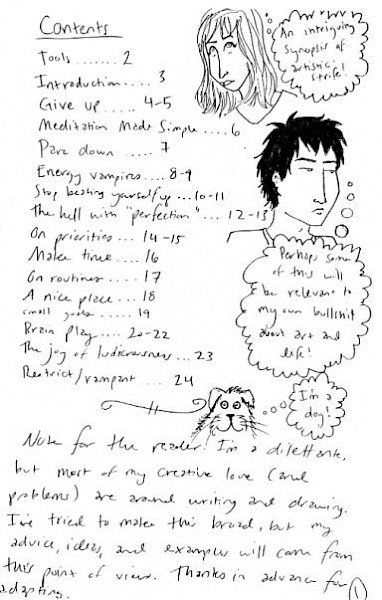 Contents
Tools ....... 2
Introduction .... 3
Give up ..... 4-5
Meditation Made Simple .... 6
Pare down ..... 7
Energy vampires.... 8-9
Stop beating yourself up ... 10-11
The hell with "perfection" ... 12-13
On priorities .... 14-15
Make time .... 16
On routines .... 17
A nice place .... 18
small goals .... 19
Brain Play .... 20-22
The joy of ludicrousness ... 23
Restrict/rampant .... 24
An intriguing
synopsis of
artistic
strife!
Perhaps some
of this will
be relevant to
my own bullshit
about art and
life!
I'm a
dog!
Note for the reader: I'm a dilettante,
but most of my creative love (and
problems) are around writing and drawing.
I've tried to make this broad, but my
advice, ideas, and examples will come from
this point of view. Thanks in advance for
adapting.
1